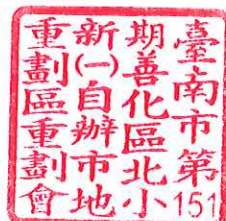 臺南市第151
期善化區北小
新(一)自辦市地
重劃區重劃會